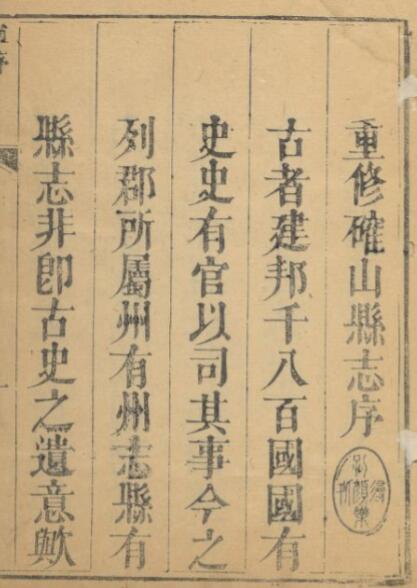 重修確山縣志序
古者建邦千八百國國有
史史有官以司其事今之
列郡所屬州有州志縣有
縣志非卽古史之遺意歟